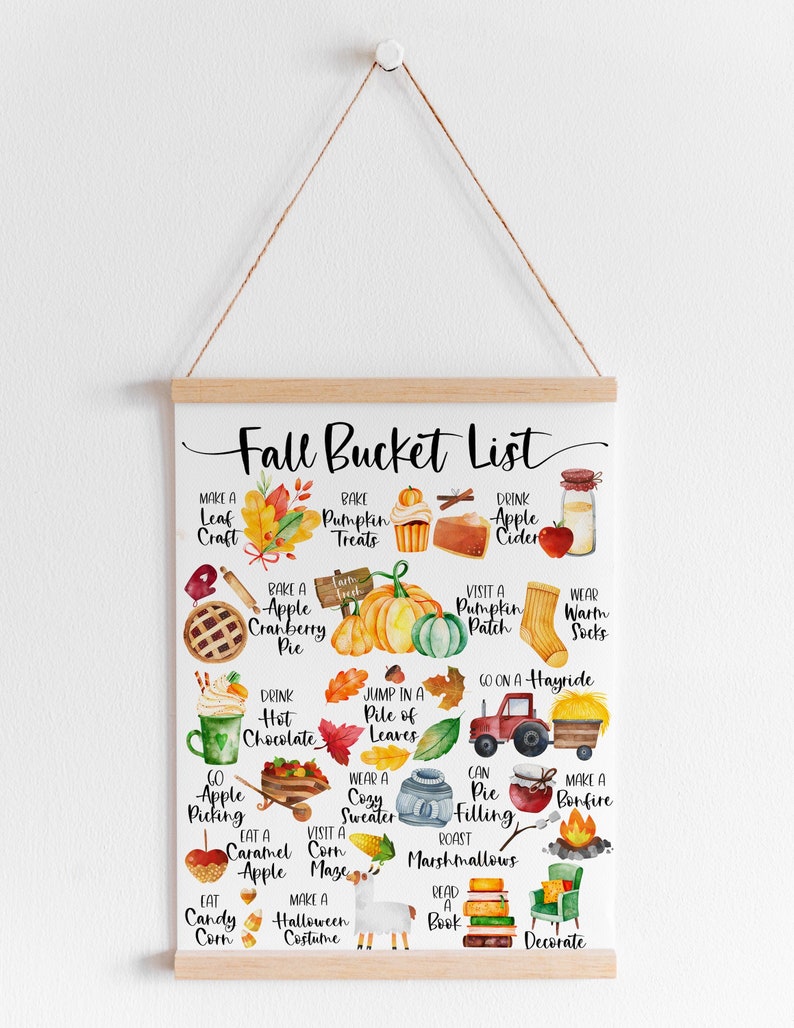 Fall Bucket List
MAKE A
Leaf
Craft
BAKE
Pumpkin
Treats
DRINK
Apple
Cider
BAKE A
Apple
Cranberry
Pie
Farm
Fresh
VISIT A
Pumpkin
Patch
WEAR
Warm
Socks
DRINK
Hot
Chocolate
JUMP IN A
Pile of
Leaves
GO ON A Hayride
GO
Apple
Picking
WEAR A
Cozy
Sweater
CAN
Pie
Filling
MAKE A
Bonfire
EAT A
Caramel
Apple
VISIT A
Corn
Maze
ROAST
Marshmallows
EAT
Candy
Corn
MAKE A
Halloween
Costume
READ
A
Book
Decorate